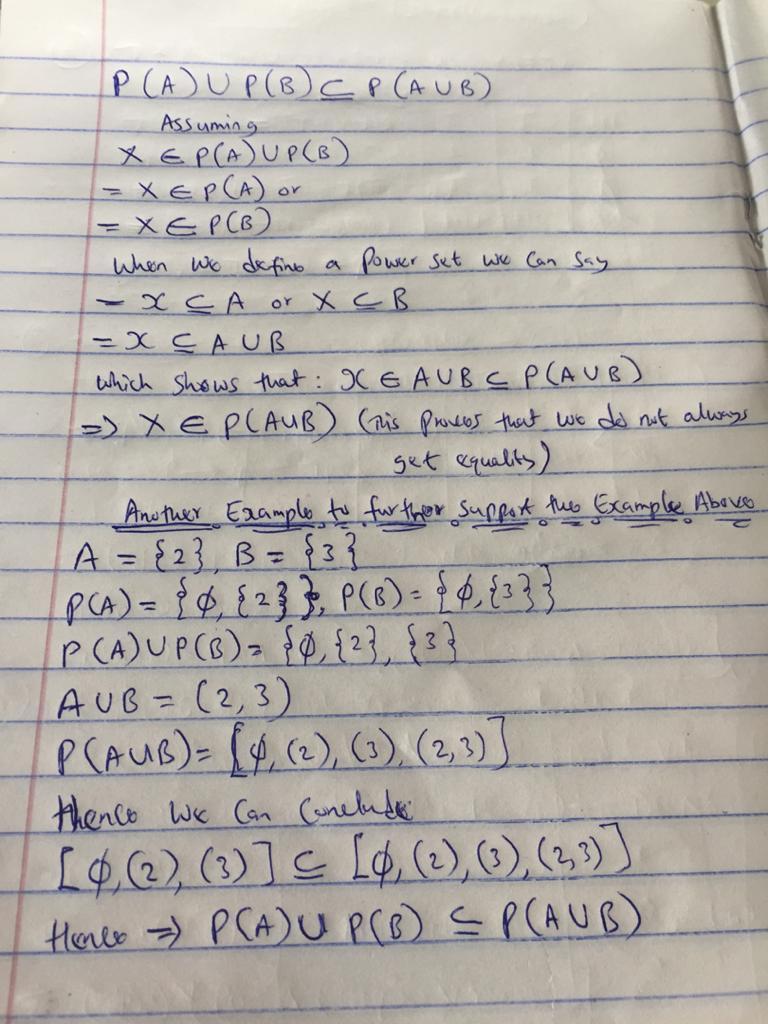 P(A) ∪ P(B) ⊆ P(A ∪ B)
Assuming
X ∈ P(A) ∪ P(B)
= X ∈ P(A) or
= X ∈ P(B)
When we define a Power set we can say
– x ⊆ A or X ⊆ B
= x ⊆ A ∪ B
which shows that : x ∈ A ∪ B ⊆ P(A ∪ B)
=> X ∈ P(A∪B) (This proves that we do not always
get equality)
Another Example to further support the Example Above
A = {2}, B = {3}
P(A) = {ϕ, {2}}, P(B) = {ϕ, {3}}
P(A) ∪ P(B) = {ϕ, {2}, {3}
A ∪ B = (2, 3)
P(A∪B) = [ϕ, (2), (3), (2,3)]
Hence we can conclude
[ϕ, (2), (3)] ⊆ [ϕ, (2), (3), (2,3)]
Hence => P(A) ∪ P(B) ⊆ P(A ∪ B)